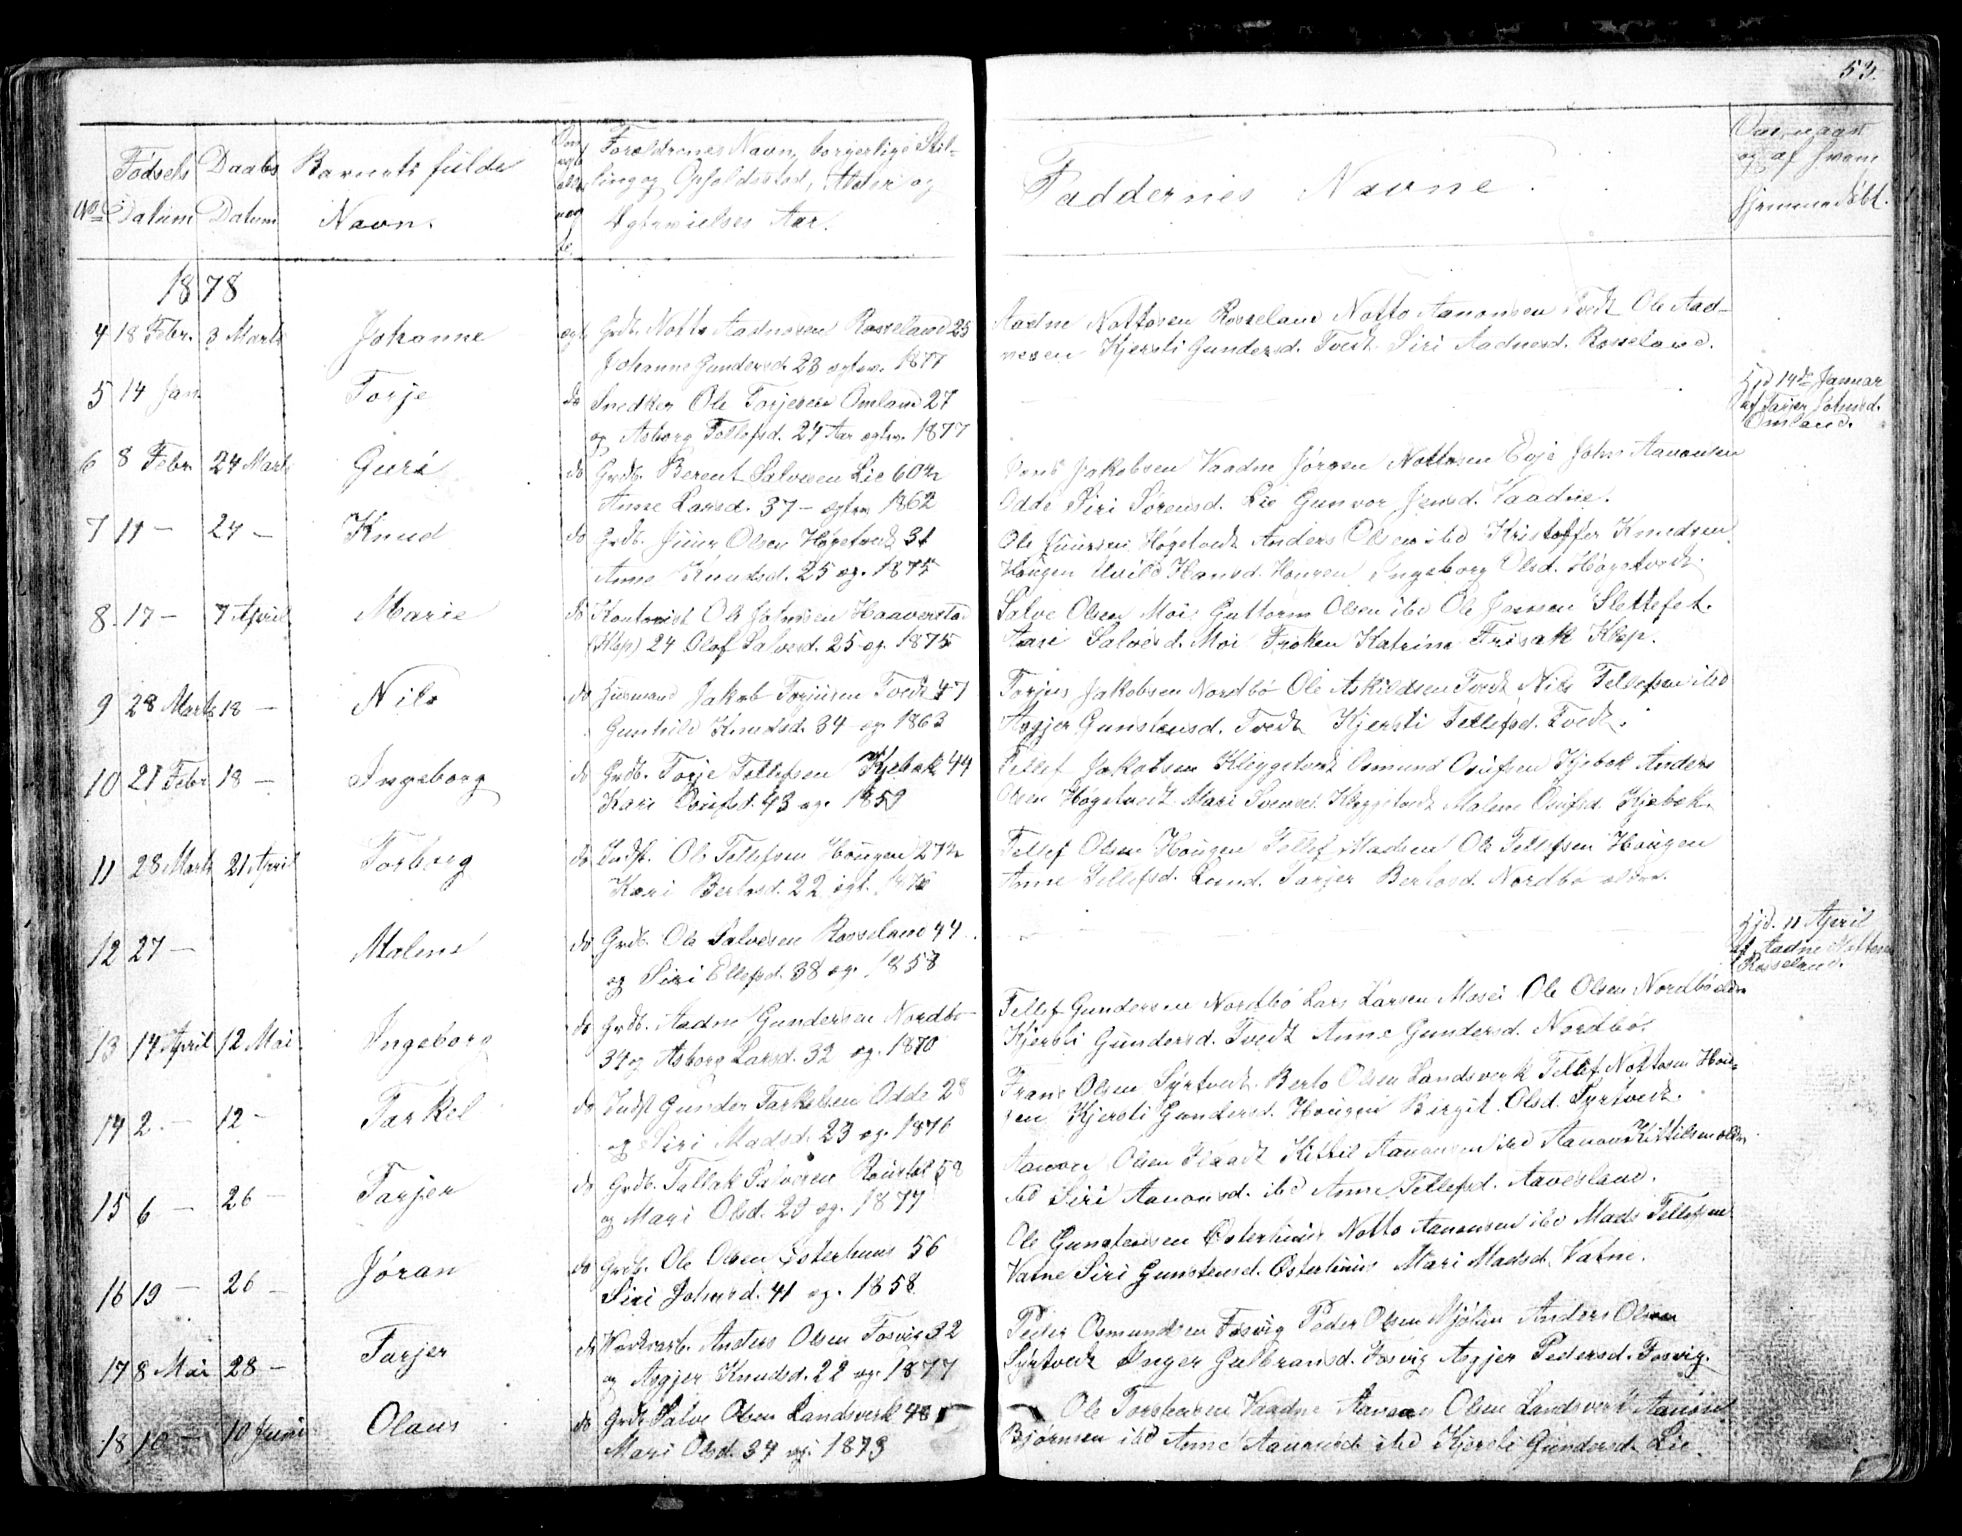 53.
Fødsels Daabs Barnets fulde
No Datum Datum Navn.
Forældrenes Navn, borgerlige Stil-
ling og Opholdssted, Alder og
Ægtevielses Aar.
Faddernes Navne.
og af hvem
hjemmedøbt.
1878
4 18 Febr. 3 Marts Johanne ægte Grdb. Notto Aadnesen Rosseland 25
Johanne Gundersd. 23 ægtev. 1877
Aadne Nottosen Rosseland Notto Aanonsen Tvedt Ole Aad-
nesen Kjersti Gundersd. Tvedt Siri Aadnesd. Rosseland.
5 14 Jan Torje do Snedker Ole Torjesen Omland 27
og Asborg Tellefsd. 24 Aar ægtev. 1877
Hjd 14de Januar
af Tarjer Johnsd.
Omland.
6 8 Febr. 24 Marts Guri do Grdb. Berent Salvesen Lie 60 og
Anne Larsd. 37 - ægtev 1862
Jens Jakobsen Vaadne Jørgen Nottosen Eeje John Aanonsen
Odde Siri Sørensd. Lie Gunvor Jensd. Vaadne.
7 11 - 24 - Knud do Grdb. Juur Olsen Høgetvedt 31
Anne Knudsd. 25 æg. 1875
Ole Juursen Høgetvedt Anders Olsen ibd Kristoffer Knudsen
Hougen Hansd. Hougen Ingeborg Olsd. Høgetvedt.
8 17 - 7 April Marie do Kontorist Ole Johnsen Haaverstad
(Klep) 24 Olaf Salvesd. 25 æg. 1875
Salve Olsen Moi Guttorm Olsen ibd Ole Jensen Slettefet.
Aase Salvesd. Moi Frøken Katrine Frisak Klep.
9 28 Marts 18 - Nils do Huusmand Jakob Torjusen Tvedt 47
Gunhild Knudsd. 34 - æg. 1863
Torjus Jakobsen Nordbø Ole Askildsen Tvedt Nils Tellefsen ibd
Asgjer Gunstensd. Tvedt Kjersti Tellefsd. Tvedt.
10 21 Febr 18 - Ingeborg do Grdb. Torje Tellefsen Kjebæk 44
Kari Osufsd. 43 æg. 1859
Tellef Jakobsen Kløygetvedt Osmund Osufsen Kjebæk Anders
Olsen Høgetvedt Mari Svensd. Kløygetvedt Malene Osufsd. Kjebæk.
11 28 Marts 21 April Torborg do Indst. Ole Tellefsen Hougen 27 og
Kari Bertosd. 22 ægt. 1876
Tellef Olsen Hougen Tellef Madsen Ole Tellefsen Hougen
Anne Tellefsd. Lund. Tarjer Bertosd. Nordbø ældre.
12 27 - Malene do Grdb. Ole Salvesen Rosseland 44
og Siri Ellefsd. 38 æg. 1858
Hjd. 11 April
af Aadne Nottosen
Rosseland.
13 14 April 12 Mai Ingeborg do Grdb. Aadne Gundersen Nordbø
34 og Asborg Larsd. 32 æg. 1870
Tellef Gundersen Nordbø Lars Larsen Mosei Ole Olsen Nordbø ældre
Kjersti Gundersd. Tvedt Anne Gundersd. Nordbø.
14 2 - 12 - Tarkel do Indst Gunder Tarkelsen Odde 28
og Siri Madsd. 23 æg. 1876
Frans Olsen Syrtvedt Berto Olsen Landsverk Tellef Nottosen Hou-
gen Kjersti Gundersd. Hougen Birgit Olsd. Syrtvedt.
15 6 - 26 - Tarjer do Grdb. Tallak Salvesen 58
og Mari Olsd. 23 æg. 1877
Aanon Olsen Flaadt Kittil Aanonsen ibd Aanon Kittilsen ældre
ibd Siri Aanonsd. ibd Anne Tellefsd. Aavesland.
16 19 - 26 - Jøran do Grdb. Ole Olsen Østerhuus 56
Siri Johnsd. 41 æg. 1858
Ole Gunstensen Østerhuus Notto Aanonsen ibd Mads Tellefsen
Vatne Siri Gunstensd. Østerhuus Mari Madsd. Vatne.
17 8 Mai 28 - Tarjer do Anders Olsen Fosvig 32
og Asgjer Knudsd. 22 æg. 1877
Peder Osmundsen Fosvig Peder Olsen Mjølin Anders Olsen
Syrtvedt Inger Gulbransd. Fosvig Asgjer Pedersd. Fosvig.
18 10 - 10 Juni Olaus do Grdb Salve Olsen Landsverk 48
Mari Olsd. 34 æg. 1873
Ole Vaadne Aanon Olsen Landsverk
Bjørnsen ibd Anne ibd Kjersti Gundersd. Lie.